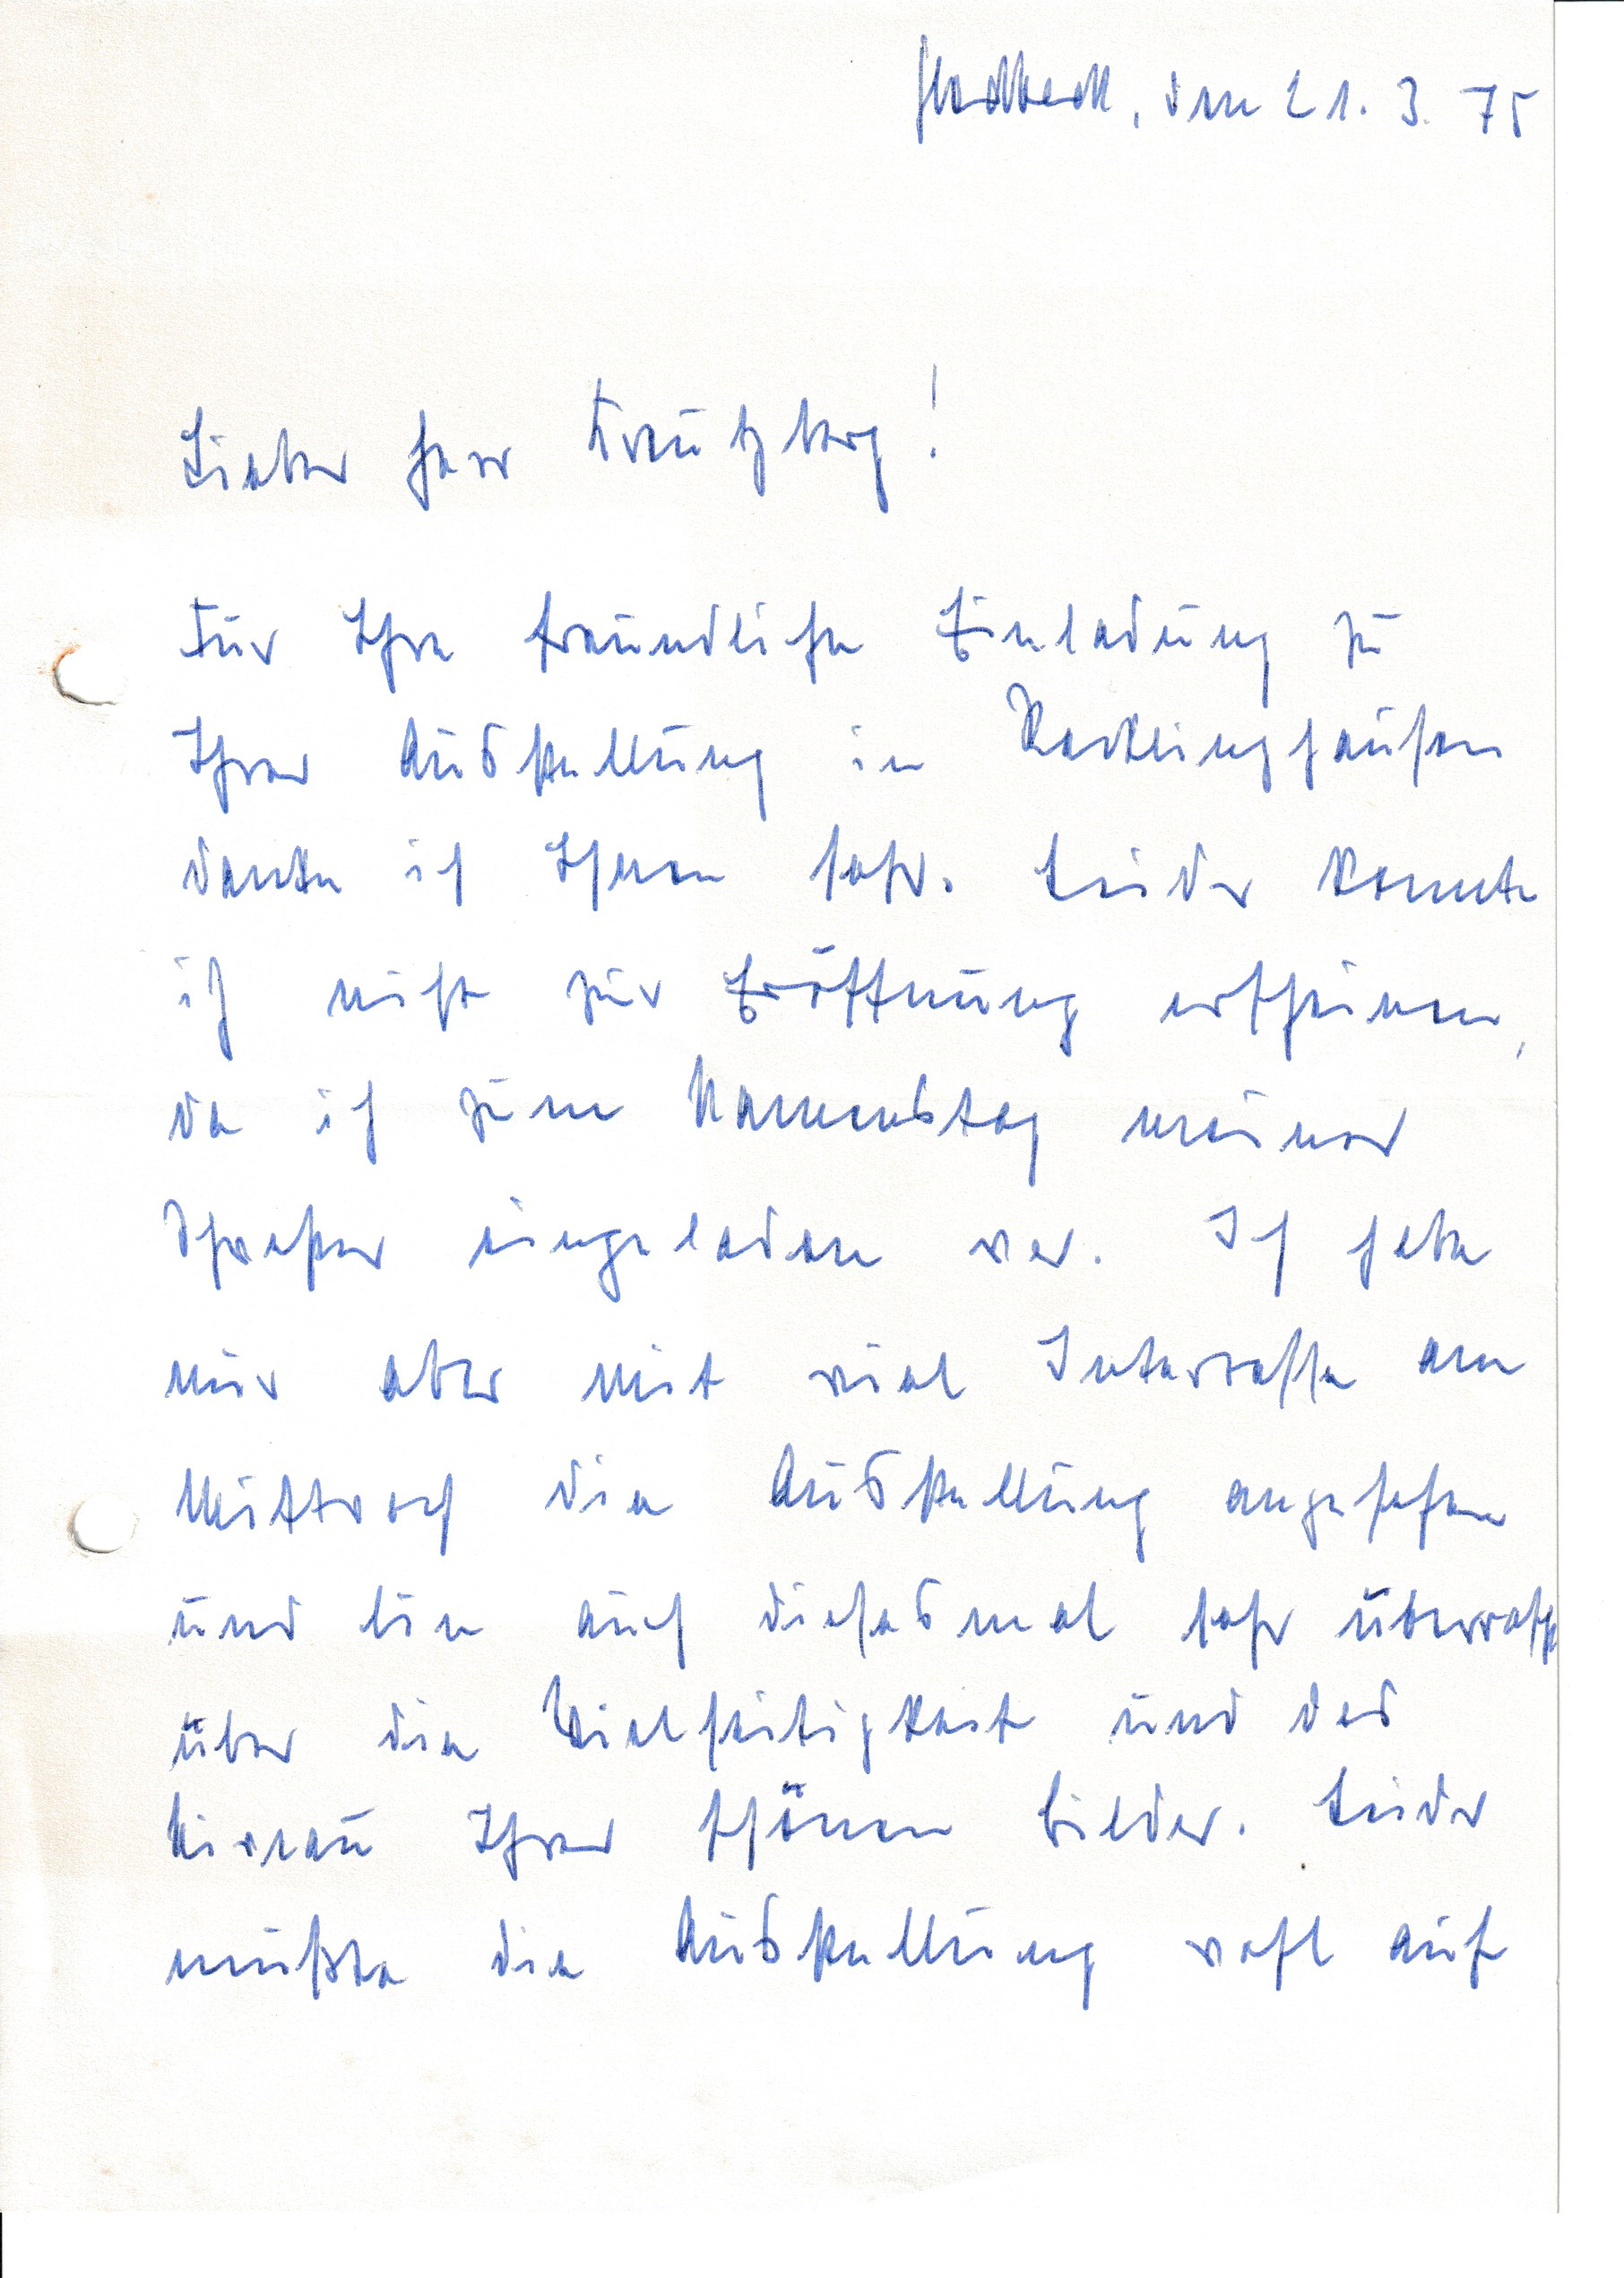 Gladbeck, den 21. 3. 75
Lieber Herr Kreutzberg!
Für Ihre freundliche Einladung zu
Ihrer Ausstellung in Recklinghausen
danke ich Ihnen sehr. Leider konnte
ich nicht zur Eröffnung erscheinen,
da ich zum Namenstag meiner
Schwester eingeladen war. Ich habe
mir aber mit viel Interesse am
Mittwoch die Ausstellung angesehen
und bin auch diesesmal sehr überrascht
über die Vielseitigkeit und das
Niveau Ihrer schönen Bilder. Leider
mußte die Ausstellung wohl auf